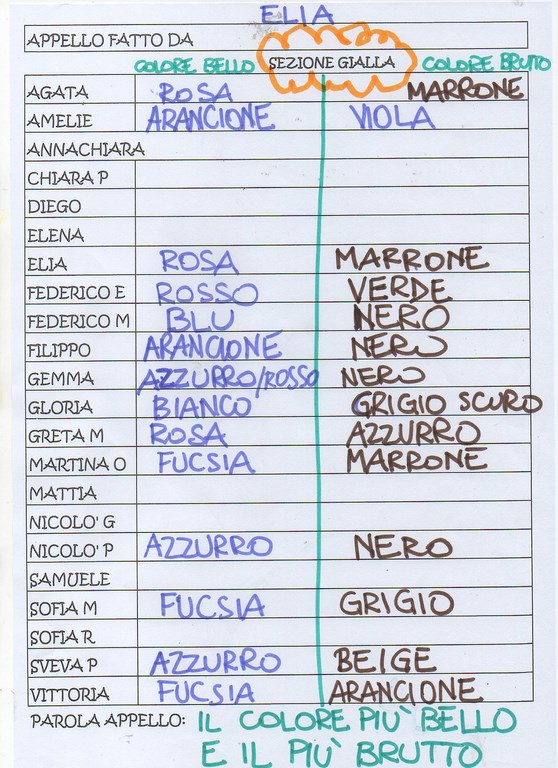 ELIA
APPELLO FATTO DA
COLORE BELLO SEZIONE GIALLA COLORE BRUTTO
AGATA ROSA MARRONE
AMELIE ARANCIONE VIOLA
ANNACHIARA
CHIARA P
DIEGO
ELENA
ELIA ROSA MARRONE
FEDERICO E ROSSO VERDE
FEDERICO M BLU NERO
FILIPPO ARANCIONE NERO
GEMMA AZZURRO/ROSSO NERO
GLORIA BIANCO GRIGIO SCURO
GRETA M ROSA AZZURRO
MARTINA O FUCSIA MARRONE
MATTIA
NICOLO' G
NICOLO' P AZZURRO NERO
SAMUELE
SOFIA M FUCSIA GRIGIO
SOFIA R
SVEVA P AZZURRO BEIGE
VITTORIA FUCSIA ARANCIONE
PAROLA APPELLO: IL COLORE PIÙ BELLO
E IL PIÙ BRUTTO